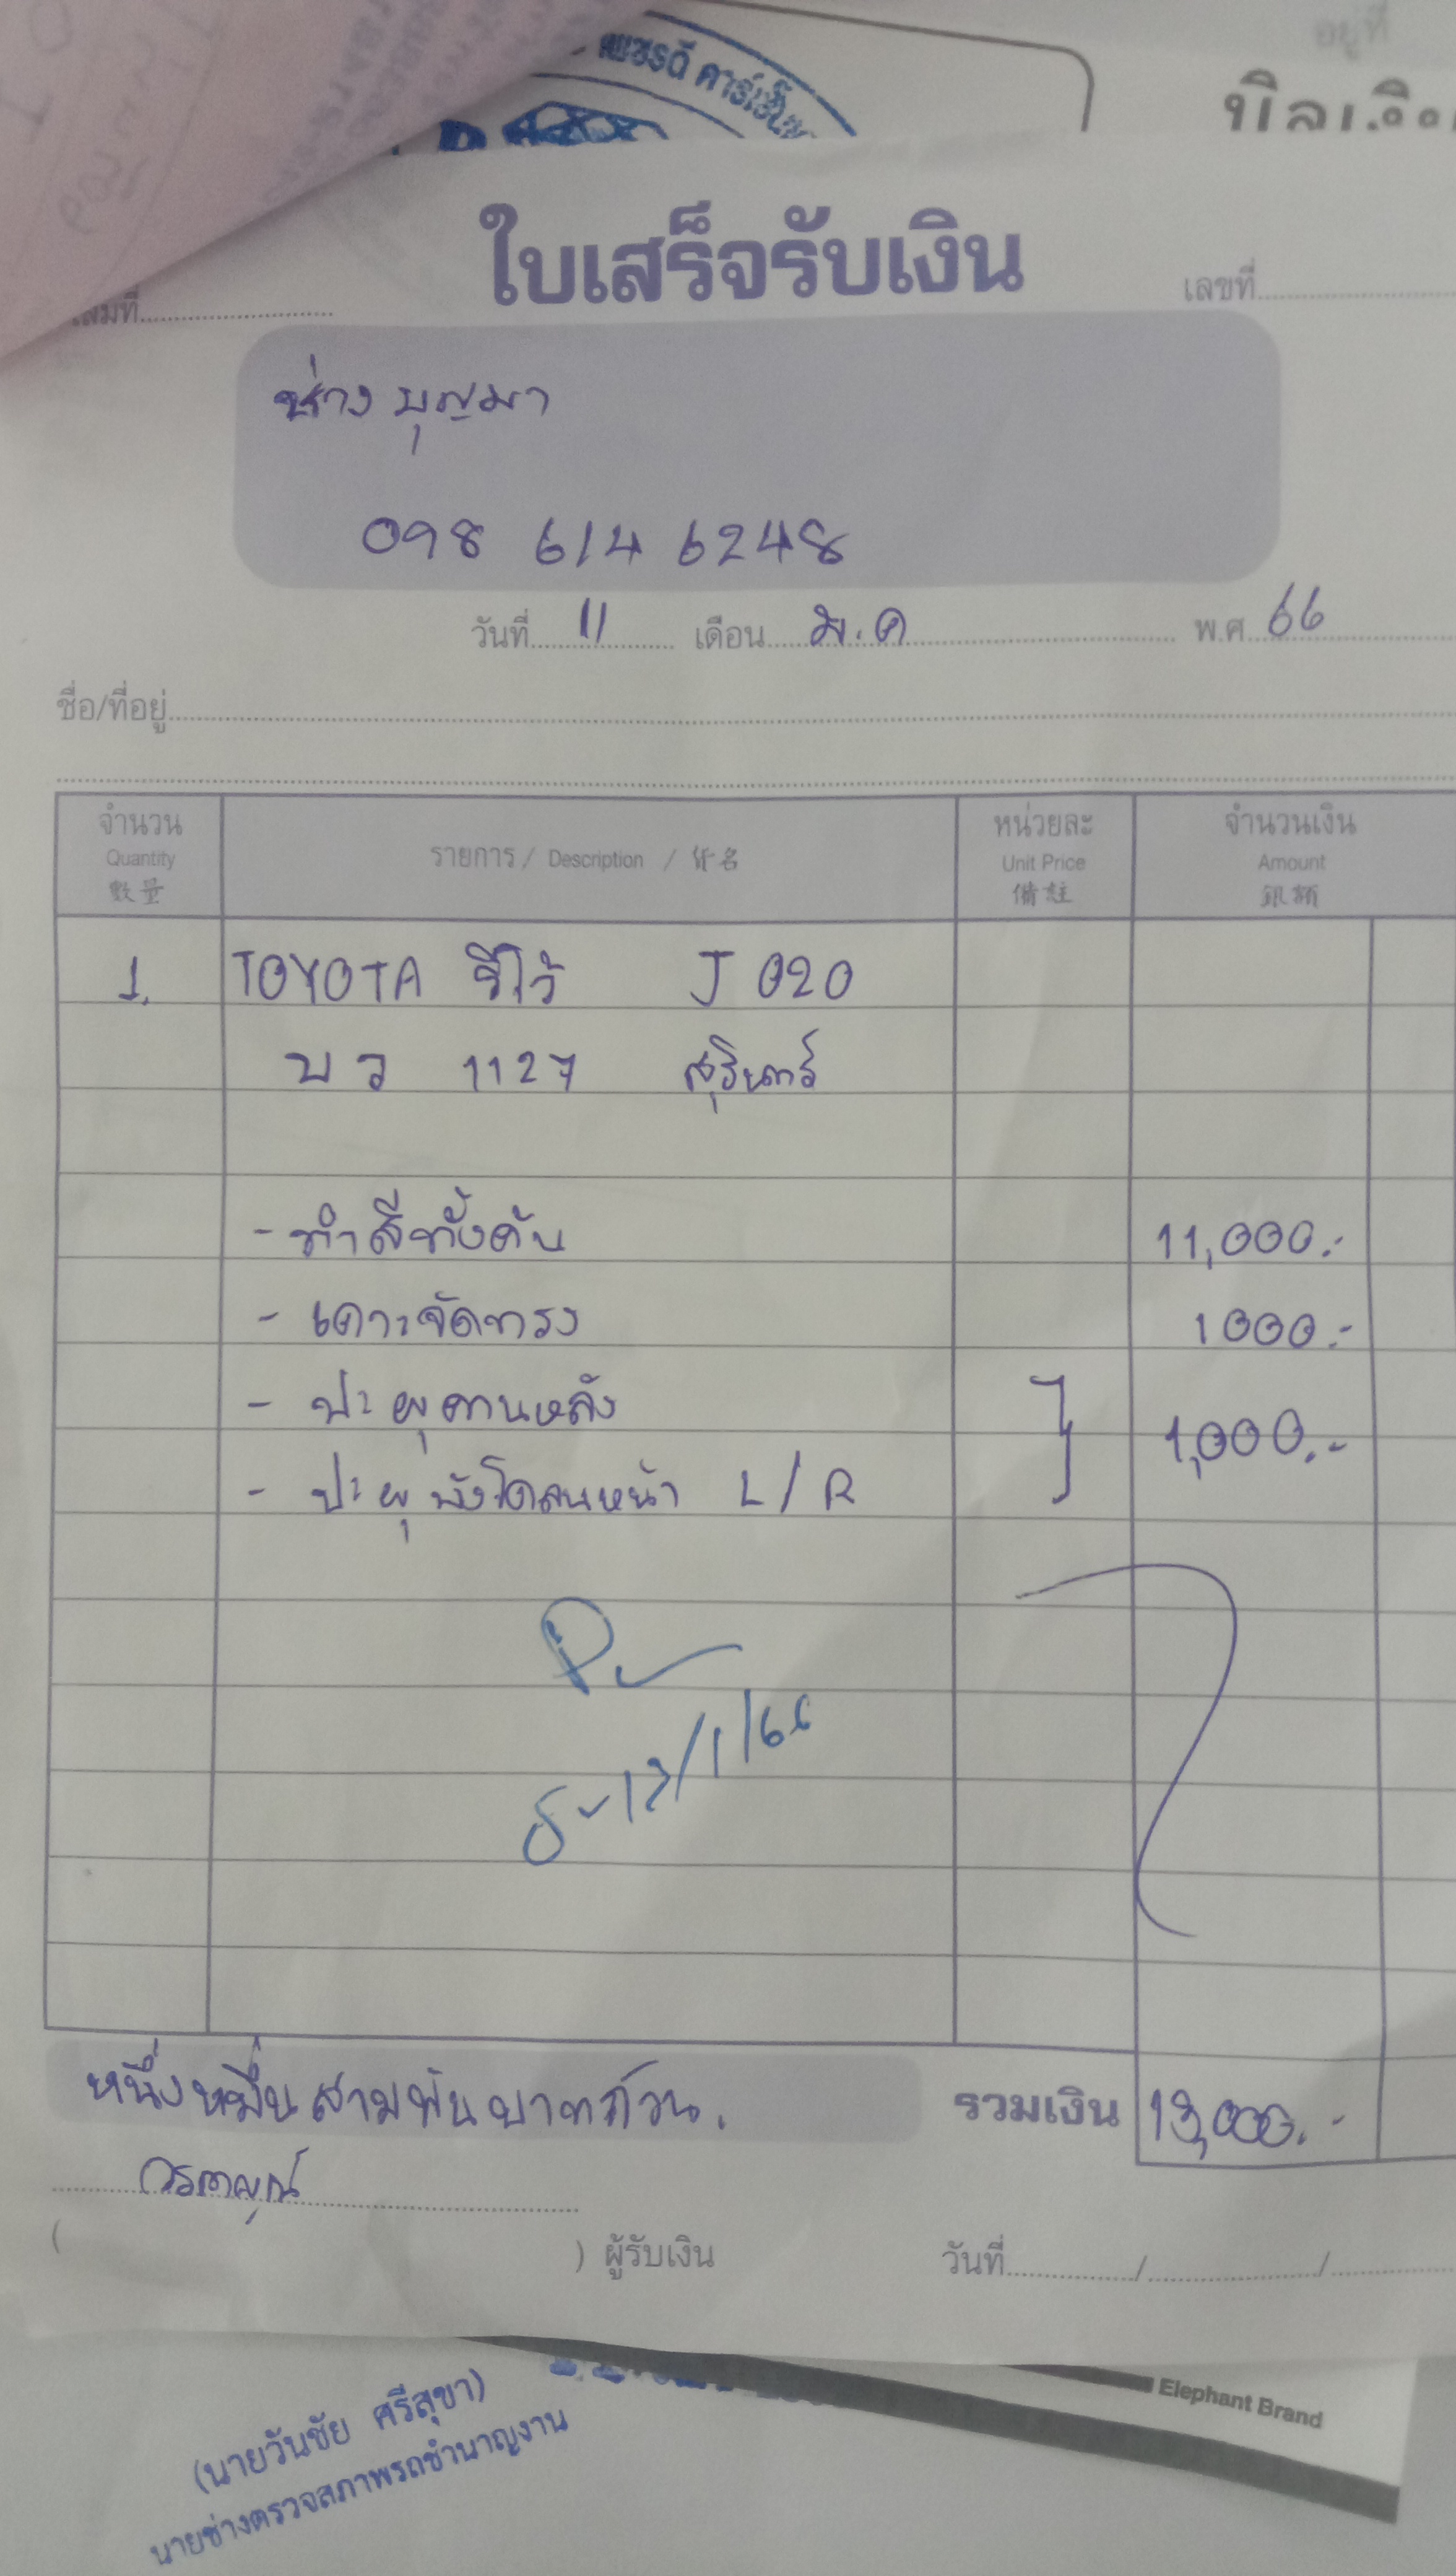 เพชรดี คาร์เซ็น
อยู่ที่
บิลเงิน
ใบเสร็จรับเงิน
เล่มที่
เลขที่
ช่าง บุญมา
098 614 6248
วันที่ 11 เดือน ม.ค พ.ศ. 66
ชื่อ/ที่อยู่
จำนวน Quantity 數量 รายการ / Description / 件名 หน่วยละ Unit Price 備註 จำนวนเงิน Amount 銀額
1. TOYOTA รีโว้ J 020
บว 1127 สุรินทร์
- ทำสีทั้งคัน 11,000.-
- เคาะจัดทรง 1000.-
- ปะผุคานหลัง
1,000.-
- ปะผุบังโคลนหน้า L/R
13/1/66
หนึ่งหมื่นสามพันบาทถ้วน. รวมเงิน 13,000.-
( ) ผู้รับเงิน วันที่ / /
Elephant Brand
(นายวันชัย ศรีสุขา)
นายช่างตรวจสภาพรถชำนาญงาน